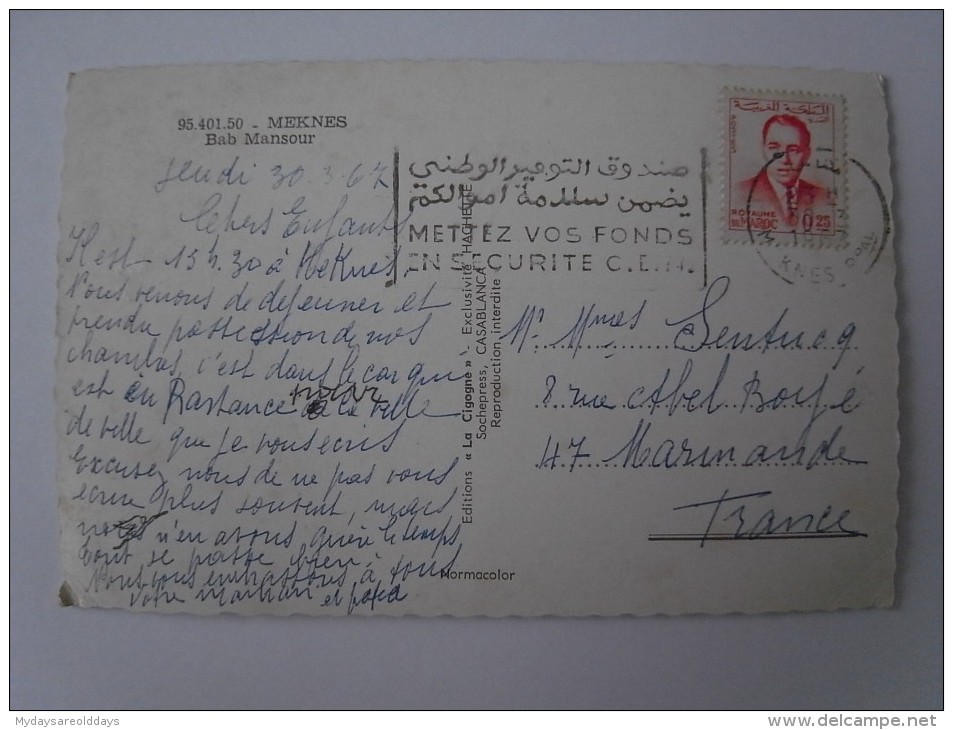 95.401.50 - MEKNES
Bab Mansour
Jeudi 30.3.67
Chers Enfants
Il est 15h.30 à Meknès
Nous venons de dejeuner et
prendre possession de nos
chambres, c'est dans le car qui
est en
de ville que je vous ecris
Excusez nous de ne pas vous
ecrire plus souvent, mais
nous n'en avons guère le temps
tout se passe bien.
Nous vous embrassons à tous
votre maman et papa
صندوق التوفير الوطني
يضمن سلامة اموالكم
METTEZ VOS FONDS
EN SECURITE C.E.N.
المملكة المغربية
ROYAUME
DU MAROC 0,25
KNES
Editions « La Cigogne » - Exclusivité HACHETTE
Sochepress, CASABLANCA
Reproduction interdite
Mr Mmes Sentucq
8 rue Abel Boyé
47 Marmande
France
Normacolor
Mydaysareolddays
www.delcampe.net